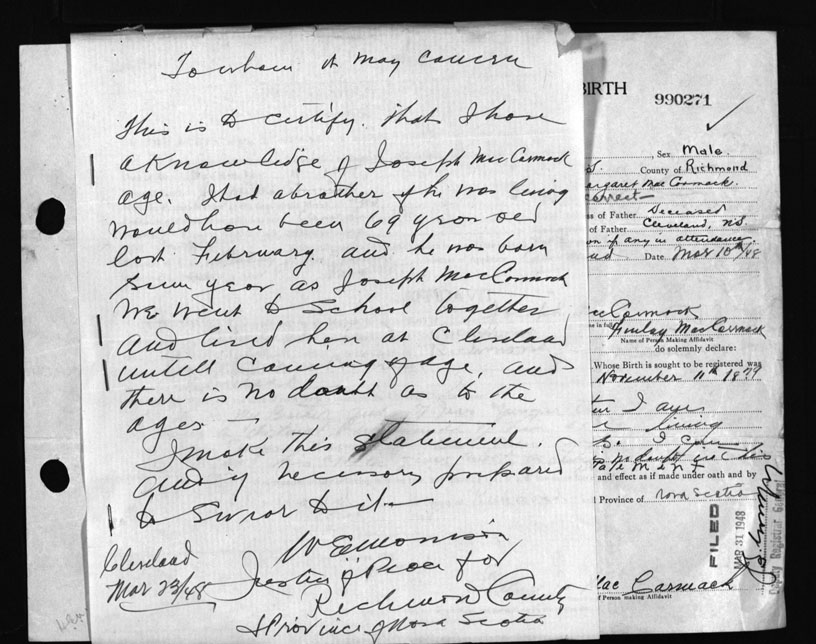 To whom it May Concern
This is to certify. that I have
a Knowledge of Joseph MacCormack
age. I had a brother if he was living
would have been 69 years old
last February and he was born
same year as Joseph MacCormack
We went to School together
and lived here at Cleveland
untell Coming of age, and
there is no doubt as to the
ages
I make this statement.
and if necessary prepared
to Swear to it
W E Morrison
Justice of Peace for
Richmond County
& Province of Nova Scotia
Cleveland
Mar 23/48
BIRTH
990271
, Sex Male
County of Richmond
Margaret MacCormack.
correct
of Father Deceased
of Father Cleveland, N.S.
on if any in attendance
Date Mar 18th/48
MacCormack
Finlay MacCormack
Name of Person Making Affidavit
do solemnly declare:
Whose Birth is sought to be registered was
November 11th 18
I am
living
I can
no doubt
and effect as if made under oath and by
Province of Nova Scotia
FILED
MAR 31 1948
Deputy Registrar General
Mac Cormack
of Person making Affidavit